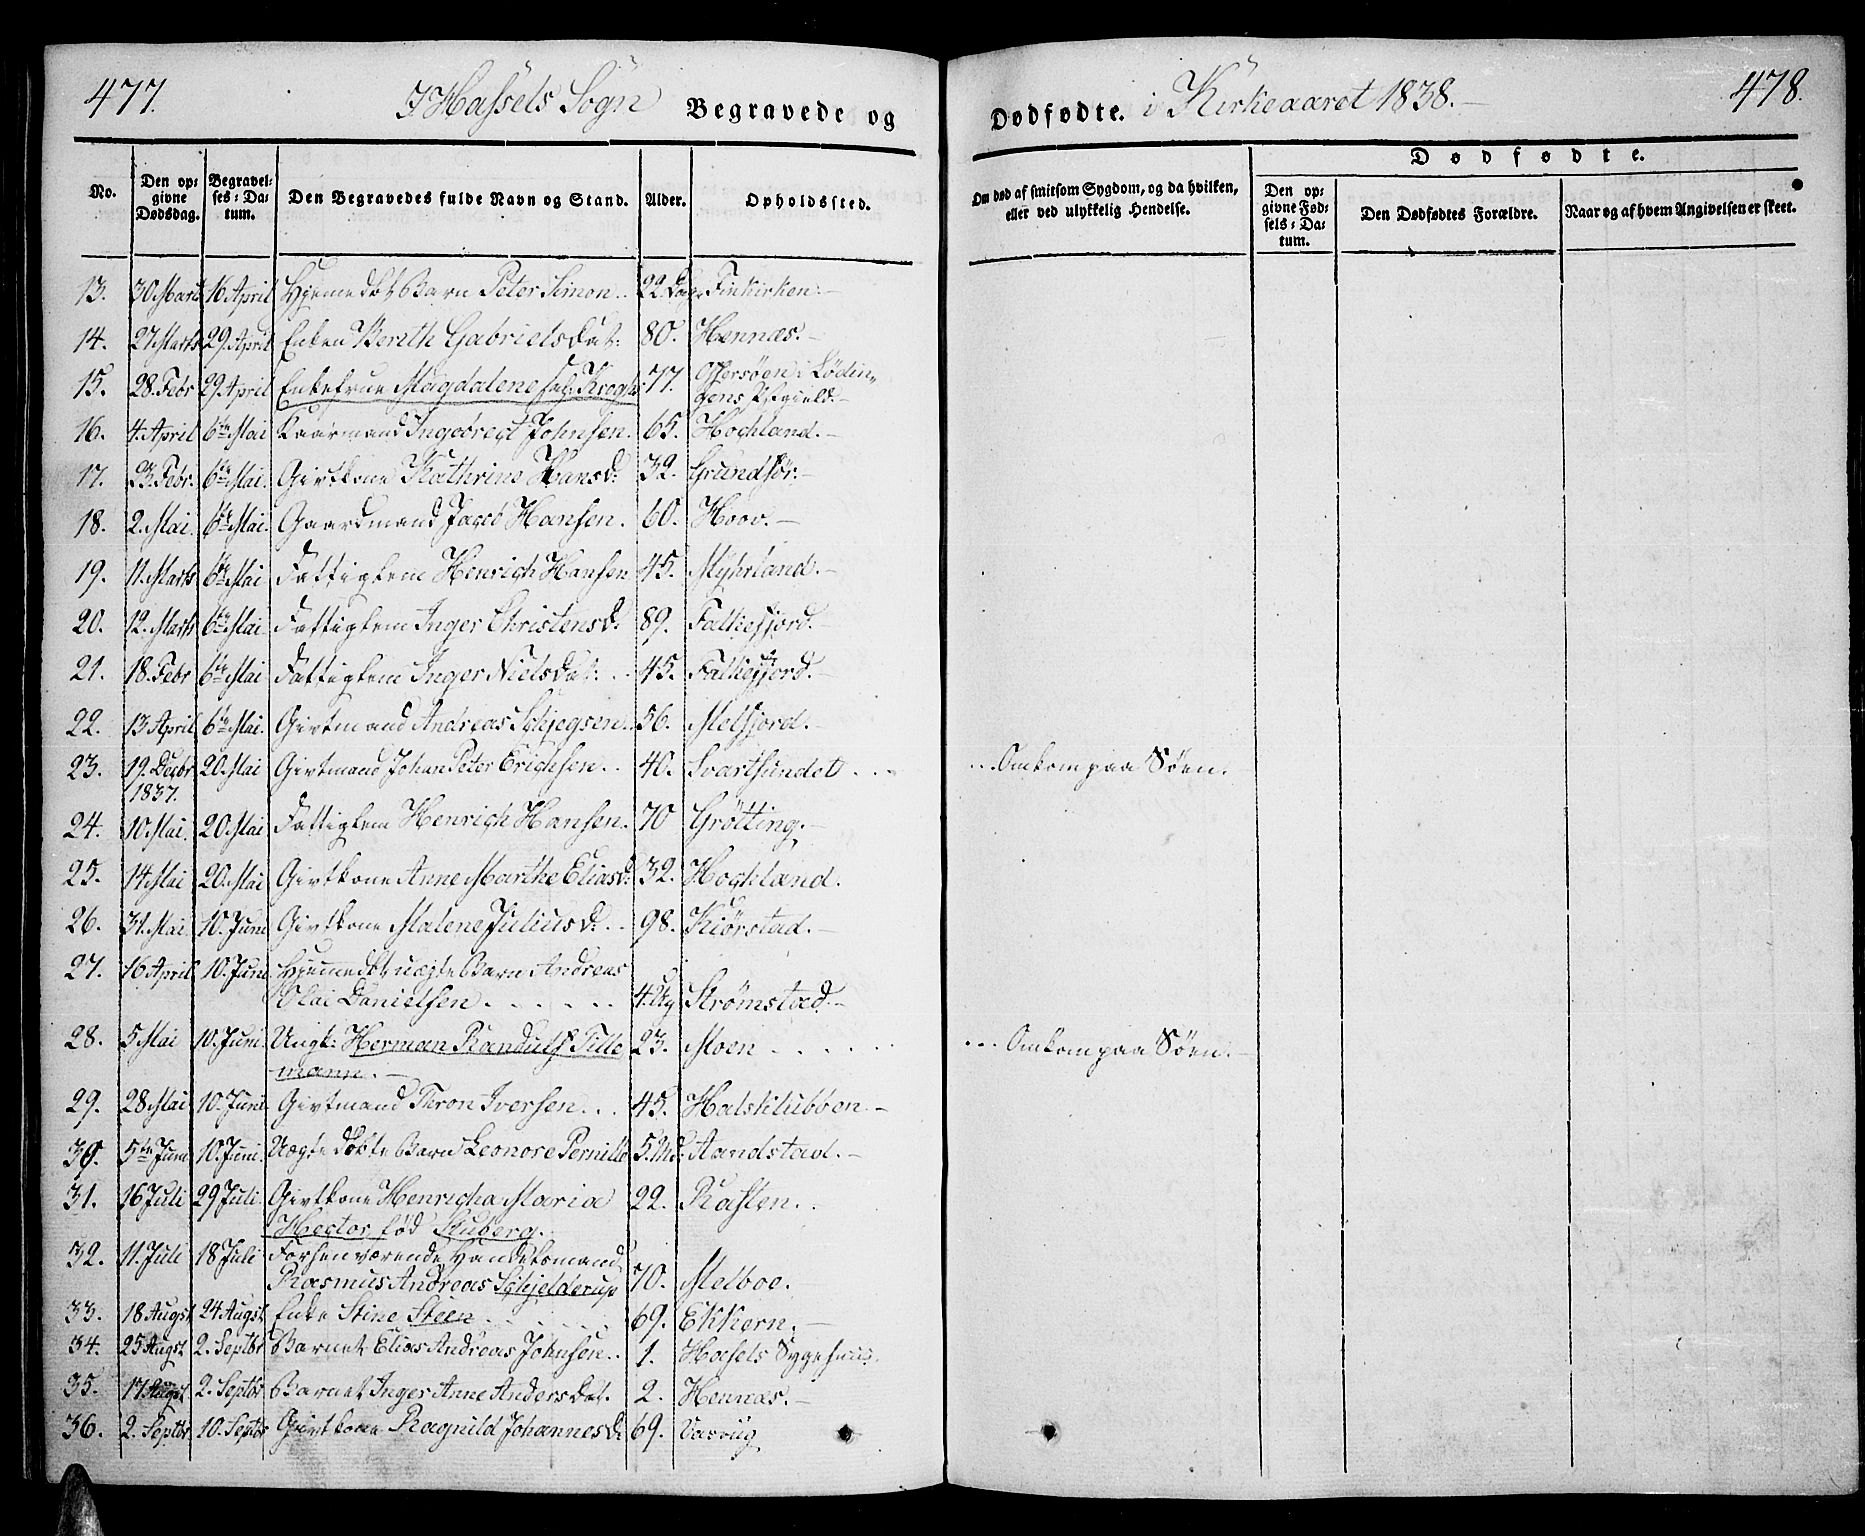 477.
I Hassels Sogn Begravede og
Dødfødte. i Kirkeaaret 1838.
478.
No.
Den op-givne Dødsdag.
Begravel-ses-Da-tum.
Den Begravedes fulde Navn og Stand.
Alder.
Opholdssted.
Om død af smitsom Sygdom, og da hvilken, eller ved ulykkelig Hendelse.
Dødfødte.
Den op-givne Fød-sels-Da-tum.
Den Dødfødtes Forældre.
Naar og af hvem Angivelsen er skeet.
13. 30 Marts 16 April Hjemedøbt Barn Peter Simon. 22 Dage Finkirken.
14. 27 Marts 29 April Enken Berith Gabrielsdat: 80. Hennæs.
15. 28. Febr 29 April Enkefrue Magdalene sal: Krogh 77. Offersøen i Lødin-
gens Pgield.
16. 4. April 6te Mai Kaarmand Ingebregt Johnsen. 65. Hochland.
17. 23. Febr. 6te Mai. Givtkone Kathrine Hansd: 32. Grundfør.
18. 2. Mai. 6te Mai. Gaardmand Jacob Hansen. 60. Hoov.
19. 11. Marts 6te Mai Fattiglem Henrich Hansen 45. Myhrland.
20. 12. Marts 6te Mai Fattiglem Inger Christensd. 89. Falkefjord.
21. 18. Febr 6te Mai Fattiglem Inger Nielsdat: 45. Falkefjord.
22. 13 April 6te Mai. Givtmand Andreas Schjegsen. 56. Melfjord.
23. 19. Decbr 20. Mai Givtmand Johan Peter Erichsen. 40. Svartsundet ... Omkom paa Søen.
1837.
24. 10. Mai. 20. Mai Fattiglem Henrich Hansen. 70 Grötting.
25. 14 Mai 20. Mai Givtkone Anne Marthe Eliasd: 32. Hochland.
26. 31. Mai 10. Juni Givtkone Malene Juliusd. 98. Kiørstad.
27. 16 April 10. Juni Hjemedøbt uægte Barn Andreas
Olai Danielsen. 4. Ug Strømstad.
28. 5 Mai 10. Juni. Ungk: Herman Randulf Tille 23. Moen ... Omkom paa Søen.
mann.
29. 28 Mai 10. Juni Givtmand Thron Iversen. 45. Halsklubben.
30. 5te Juni 10. Juni. Uægte døbte Barn Leonore Pernille 5. Md: Sandstad.
31. 16 Juli 29 Juli Givtkone Henricha Maria 22. Raften.
Hector fød Stuberg.
32. 11. Juli 18 Juli Forhenværende Handelsmand
Rasmus Andreas Schjelderup 70. Melboe.
33. 18 Augst 24 Augst Enke Stine Steen 69. Ekkern.
34. 25 Augst 2. Septbr Barnet Elias Andreas Johnsen. 1. Hasels Sygehuus.
35. 17 Augst 2. Septbr Barnet Inger Anne Andersdat. 2. Hennæs.
36. 2. Septbr 10. Septbr Givtkone Ragnild Johannesd. 69.